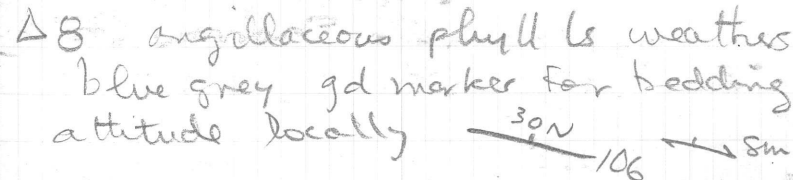 Δ8 argillaceous phyll ls weathers
blue grey gd marker for bedding
attitude locally 30N 106 8m